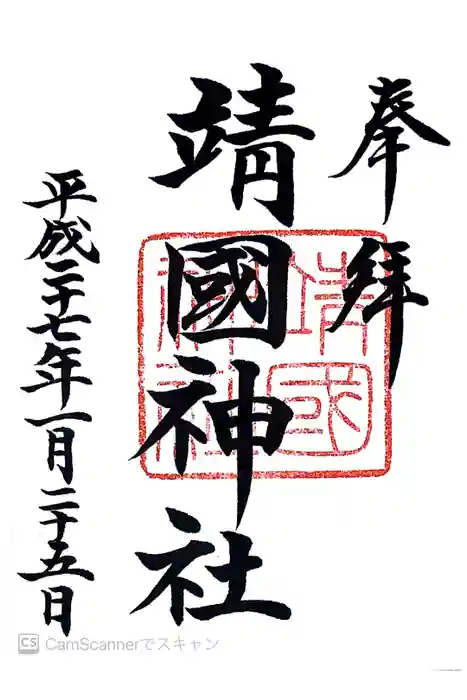 奉拝
靖國神社
平成二十七年一月二十五日
靖國神社
CS CamScannerでスキャン